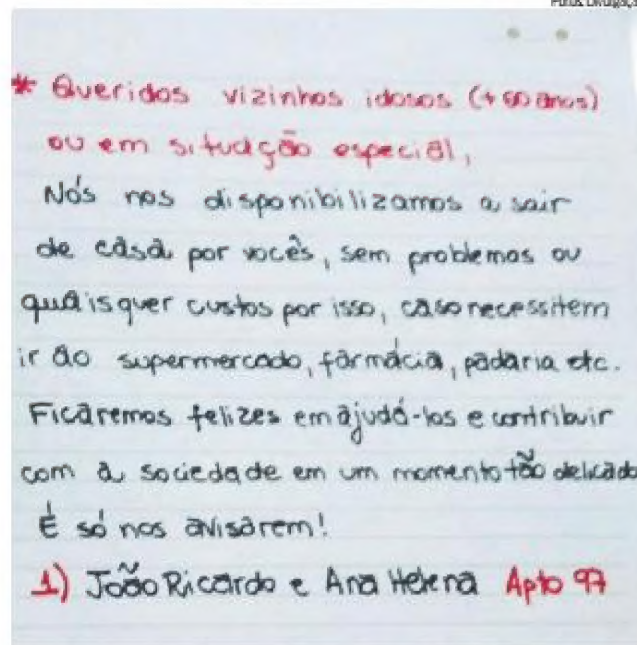 Fotos: Divulgaçã
* Queridos vizinhos idosos (+60 anos)
ou em situação especial,
Nós nos disponibilizamos a sair
de casa por vocês, sem problemas ou
quaisquer custos por isso, caso necessitem
ir ao supermercado, farmácia, padaria etc.
Ficaremos felizes em ajudá-los e contribuir
com a sociedade em um momento tão delicado
É só nos avisarem!
1) João Ricardo e Ana Helena Apto 97